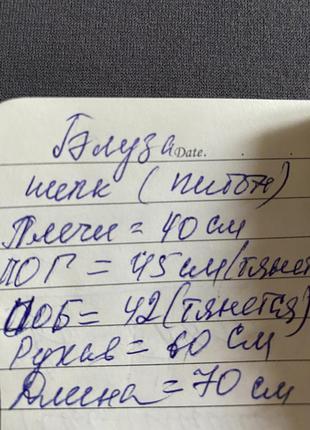 Блуза Date.
шелк (питон)
Плечи = 40 см
ПОГ = 45 см (тянет
ПОБ = 42 (тянется)
Рукав = 60 см
Длина = 70 см